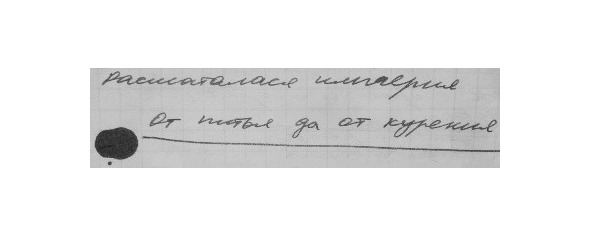 Расшаталася империя
От питья да от курения